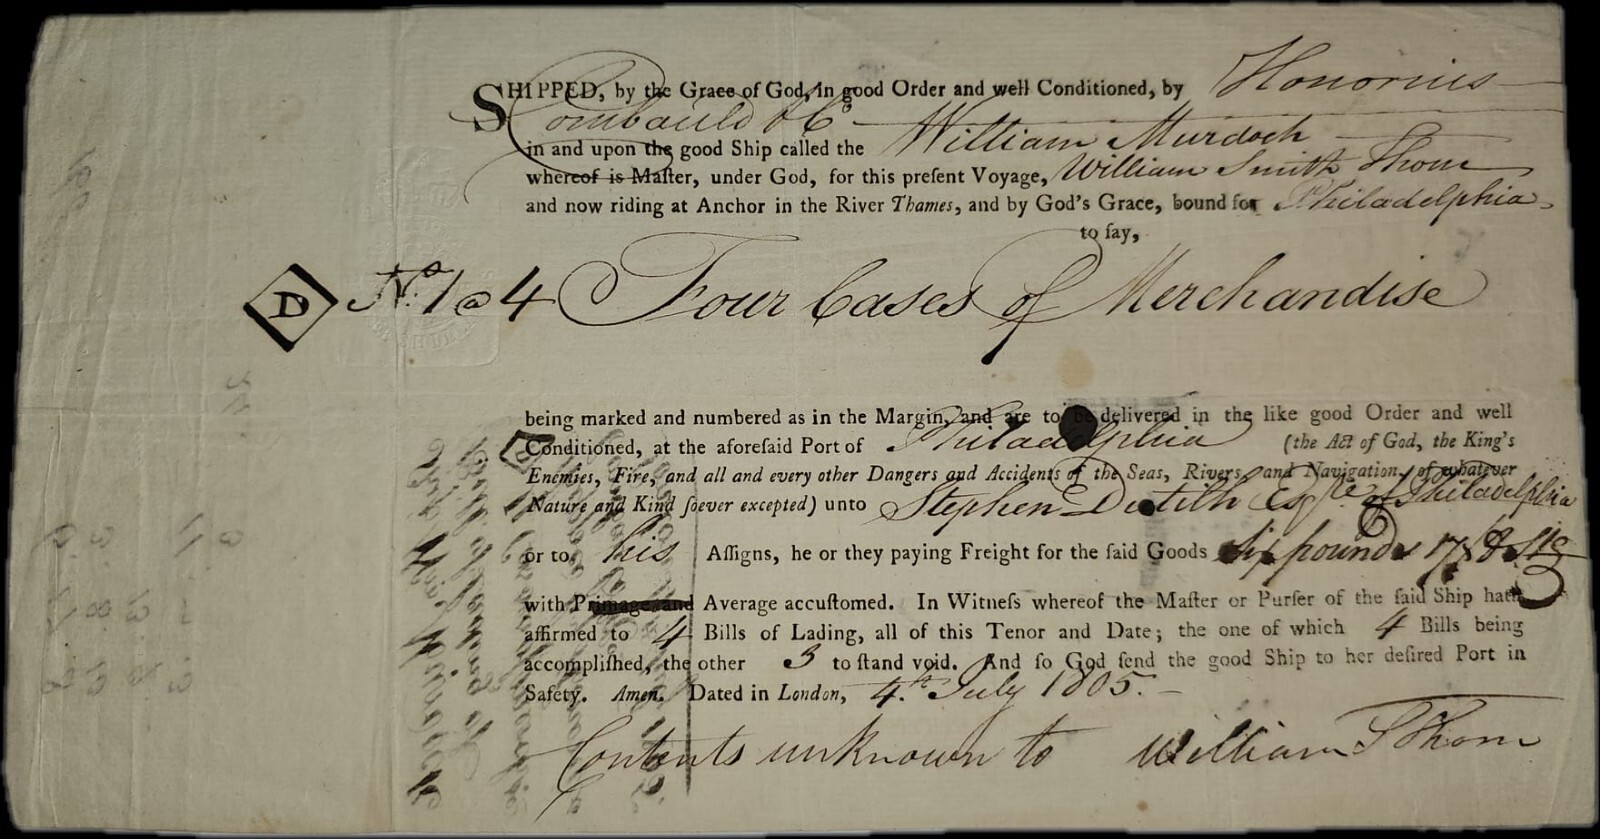 SHIPPED, by the Grace of God, in good Order and well Conditioned, by Honorius
Combauld & Co
in and upon the good Ship called the William Murdoch
whereof is Maſter, under God, for this preſent Voyage, William Smith Thom
and now riding at Anchor in the River Thames, and by God's Grace, bound for Philadelphia
to ſay,
D No. 1 @ 4 Four Cases of Merchandise
being marked and numbered as in the Margin, and are to be delivered in the like good Order and well
Conditioned, at the aforeſaid Port of Philadelphia (the Act of God, the King's
Enemies, Fire, and all and every other Dangers and Accidents of the Seas, Rivers, and Navigation, of whatever
Nature and Kind ſoever excepted) unto Stephen Dutilh Esqre of Philadelphia
or to his Aſſigns, he or they paying Freight for the ſaid Goods Six pounds 17/8 Stg
with Primage and Average accuſtomed. In Witneſs whereof the Maſter or Purſer of the ſaid Ship hath
affirmed to 4 Bills of Lading, all of this Tenor and Date; the one of which 4 Bills being
accompliſhed, the other 3 to ſtand void. And ſo God ſend the good Ship to her deſired Port in
Safety. Amen. Dated in London, 4th July 1805.
Contents unknown to William S Thom